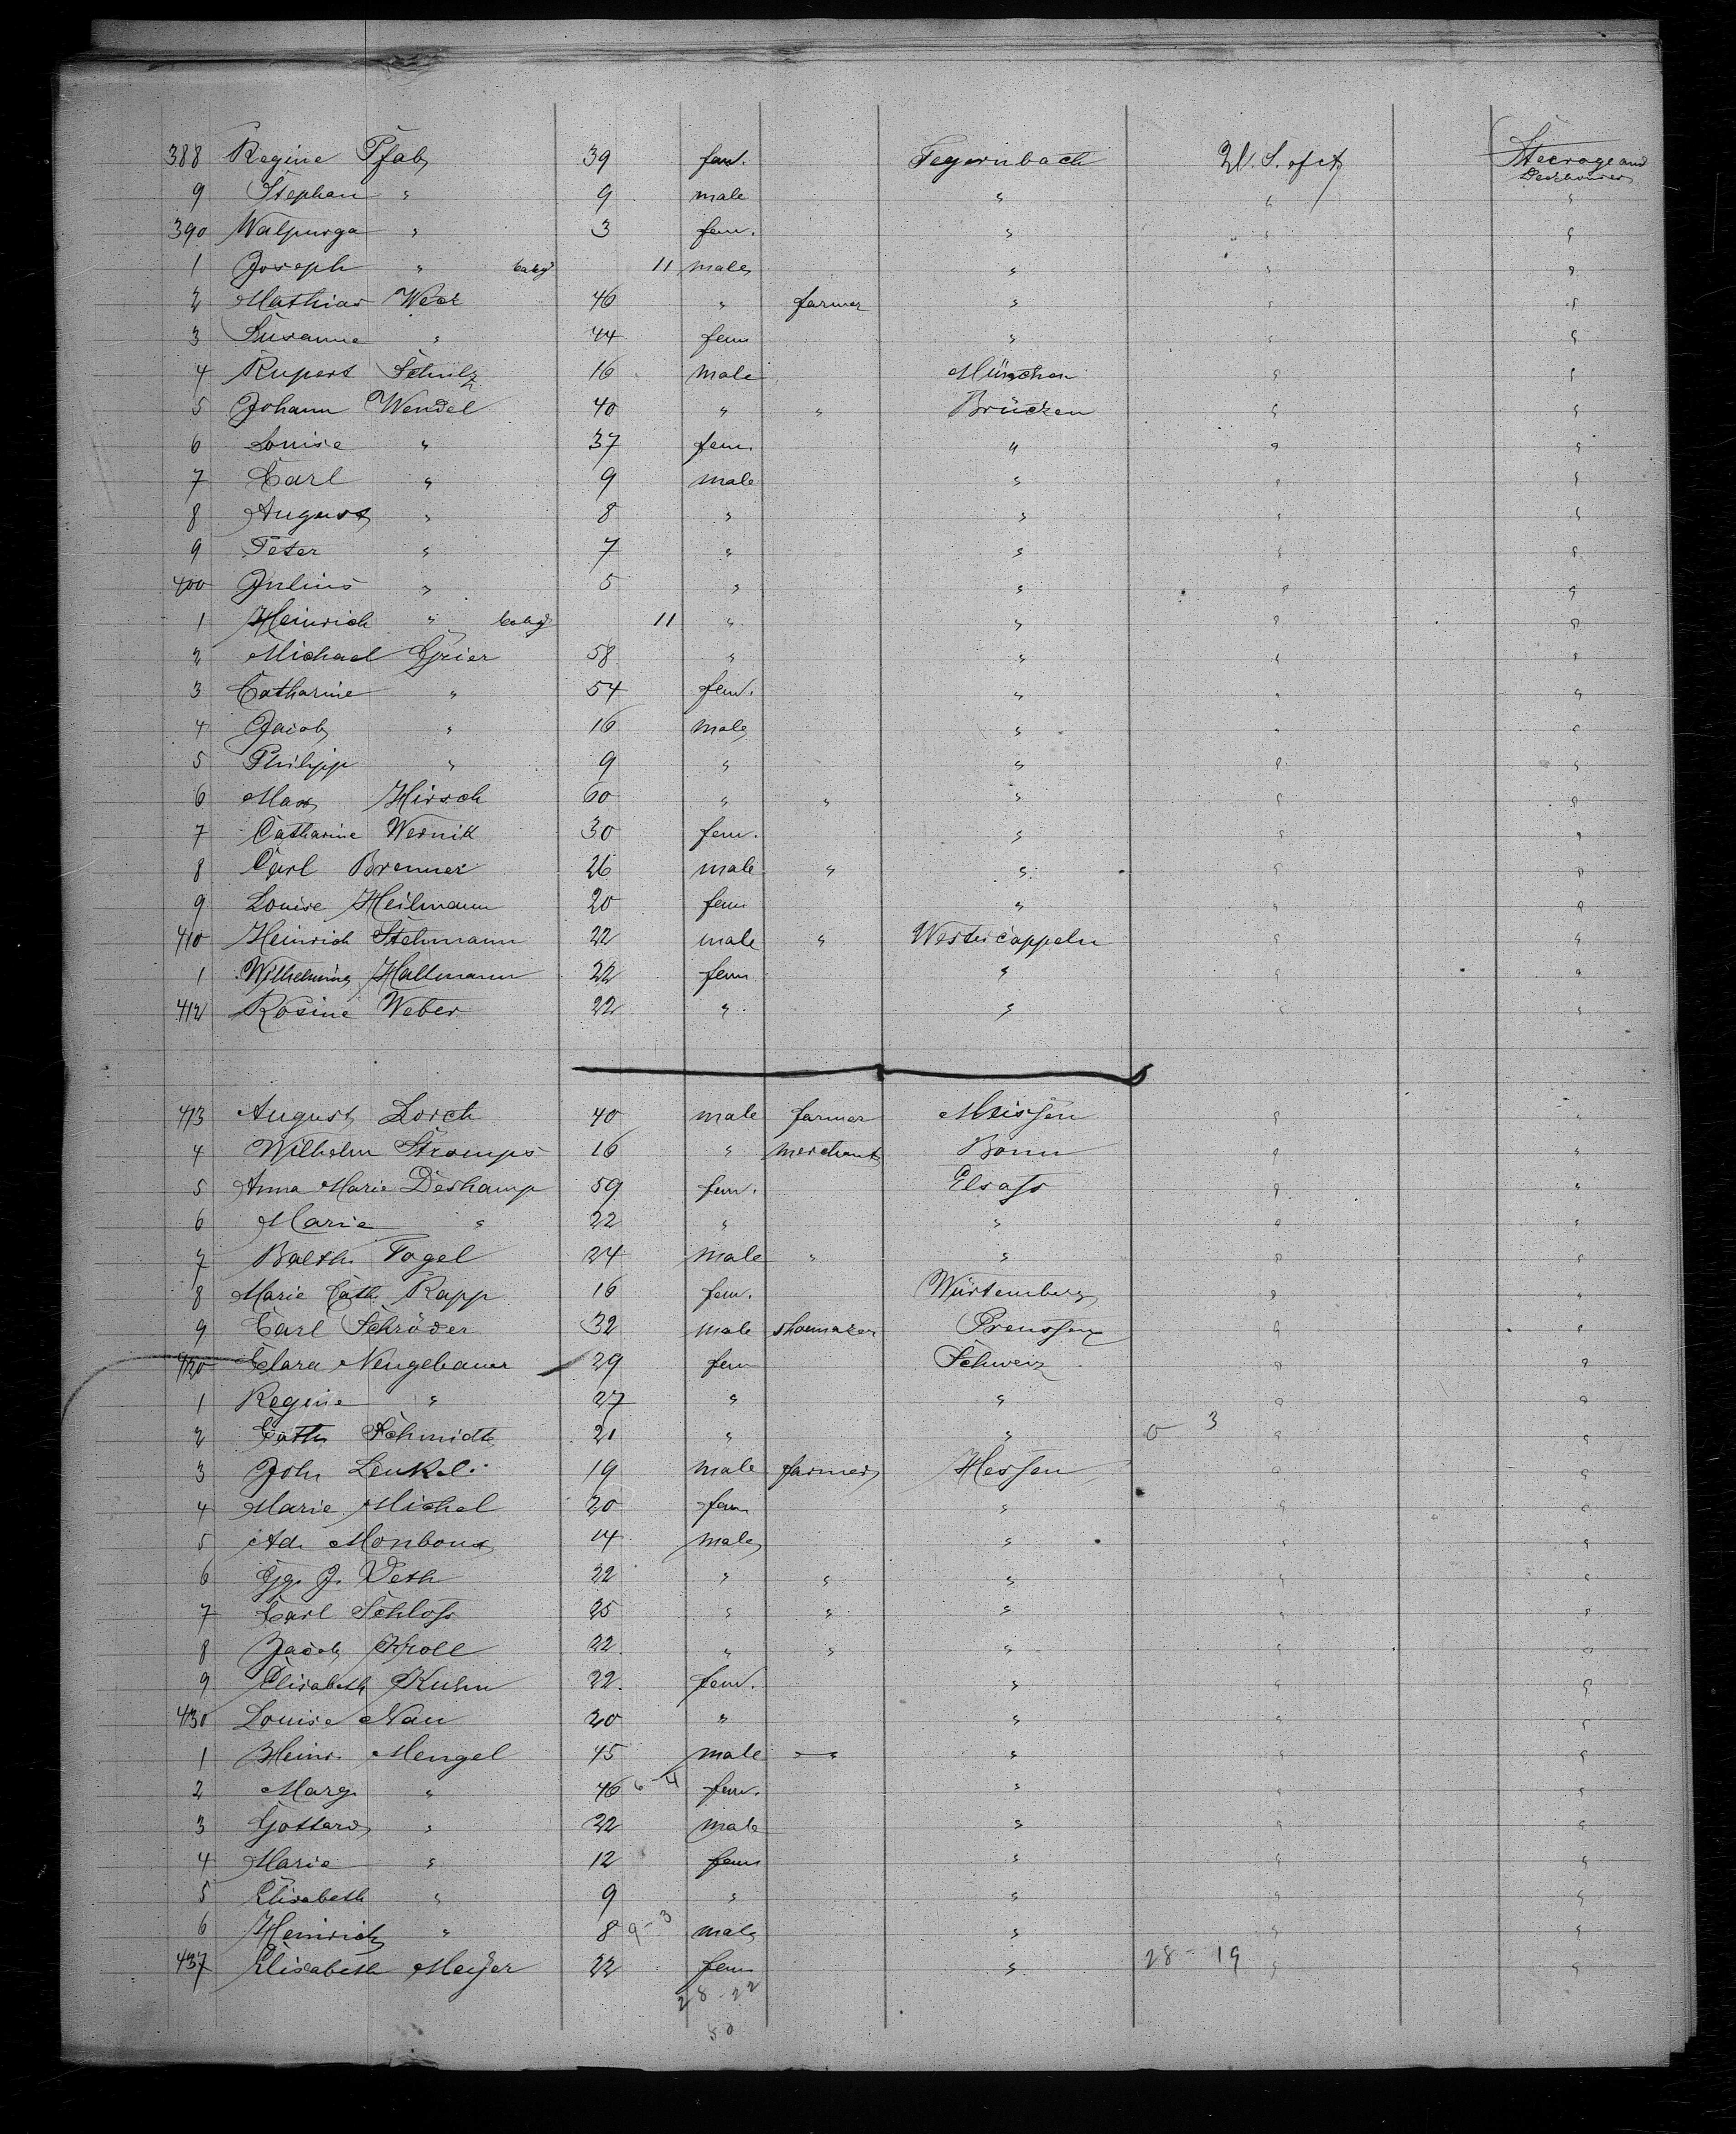 388 Regine Pfab 39 fem. Tegernbach U. S. of A Steerage and
Deckhouses
9 Stephan " 9 male " " "
390 Walpurga " 3 fem. " " "
1 Joseph " baby 11 male " " "
2 Mathias 46 " farmer " " "
3 Susanne " 44 fem " " "
4 Rupert Schulz 16 male München " "
5 Johann Wendel 40 " " Brücken " "
6 Louise " 37 fem. " " "
7 Carl " 9 male " " "
8 August " 8 " " " "
9 Peter " 7 " " " "
400 Julius " 5 " " " "
1 Heinrich " baby 11 " " " "
2 Michael Grier 58 " " " "
3 Catharine " 54 fem. " " "
4 Jacob " 16 male " " "
5 Philipp " 9 " " " "
6 Max Hirsch 60 " " " " "
7 Catharine Wernik 30 fem. " " "
8 Carl Brenner 26 male " " " "
9 Louise Heilmann 20 fem " " "
410 Heinrich Stehmann 22 male " Westercappeln " "
1 Wilhelmine Hallmann 22 fem " " "
412 Rosine Weber 22 " " " "
413 August Lorch 40 male farmer Meissen " "
4 Wilhelm Stromps 16 " merchant Bonn " "
5 Anna Marie Deshamp 59 fem. Elsass " "
6 Marie " 22 " " " "
7 Balth. Vogel 24 male " " " "
8 Marie Cath. Rapp 16 fem. Würtemberg " "
9 Carl Schröder 32 male shoemaker Preussen " "
420 Clara Neugebauer 29 fem Schweiz " "
1 Regine " 27 " " " "
2 Cath Schmidt 21 " " 0 3 " "
3 John Lenkel 19 male farmer Hessen " "
4 Marie Michel 20 fem " " "
5 Ad. Monboux 14 male " " "
6 Gg. J. Veth 22 " " " " "
7 Carl Schloss 25 " " " " "
8 Jacob Kroll 22 " " " " "
9 Elisabeth Kuhn 22 fem. " " "
430 Louise Nau 20 " " " "
1 Heinr. Mengel 45 male " " " "
2 Marg. " 46 6-4 fem. " " "
3 Gottard " 22 male " " "
4 Marie " 12 fem " " "
5 Elisabeth " 9 " " " "
6 Heinrich " 8 9-3 male " " "
437 Elisabeth Meyer 22 fem " 28-19 " "
28-22
50